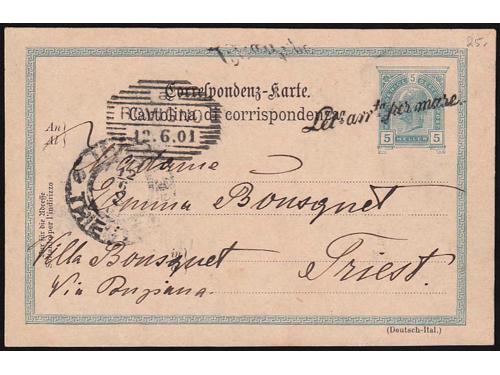 25.
Correspondenz-Karte.
Cartolina di corrispondenza
Lett. arr. per mare.
5 HELLER 5
ROVIGNO
12.6.01
An
Al
Nur für die Adresse
Solo per l'indirizzo
Madama
Emma Bousquet
Villa Bousquet
Triest.
Via
(Deutsch-Ital.)